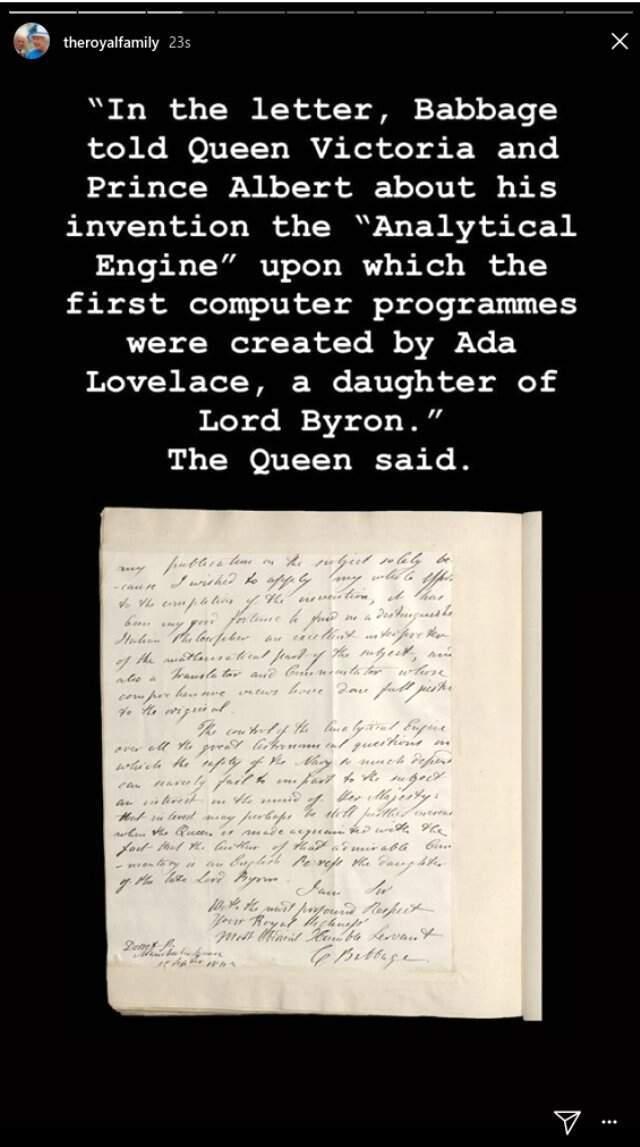 theroyalfamily 23s
“In the letter, Babbage
told Queen Victoria and
Prince Albert about his
invention the “Analytical
Engine” upon which the
first computer programmes
were created by Ada
Lovelace, a daughter of
Lord Byron.”
The Queen said.
my publication on the subject solely be
-cause I wished to apply my whole
to the completion of the invention, it has
been my good fortune to find in a distinguished
Italian Philosopher an excellent interpreter
of the mathematical part of the subject, and
also a Translator and Commentator whose
comprehensive views have done full justice
to the original.
The control of the Analytical Engine
over all the great Astronomical questions on
which the safety of the Navy so much depends
can scarcely fail to impart to the subject
an interest in the mind of Her Majesty:
that interest may perhaps be still further
when the Queen is made acquainted with the
fact that the Author of that admirable Com
-mentary is an English Peeress the daughter
of the late Lord Byron.
I am Sir
With the most profound Respect
Your Royal Highness'
Most Humble Servant
C Babbage
Dorset St
Manchester Square